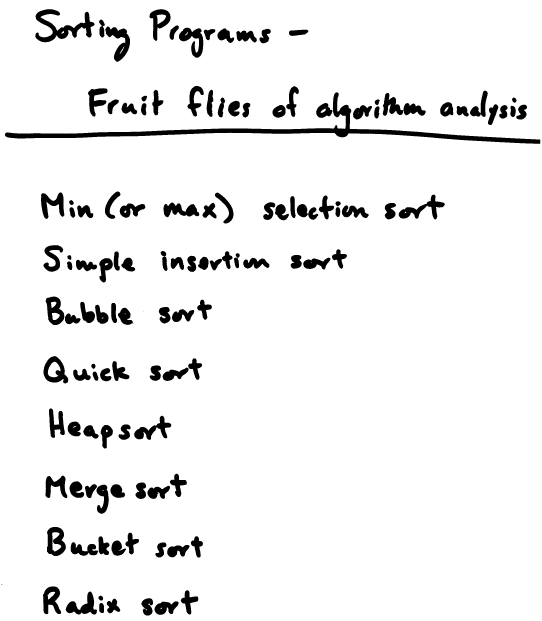 Sorting Programs -
Fruit flies of algorithm analysis
Min (or max) selection sort
Simple insertion sort
Bubble sort
Quick sort
Heapsort
Merge sort
Bucket sort
Radix sort